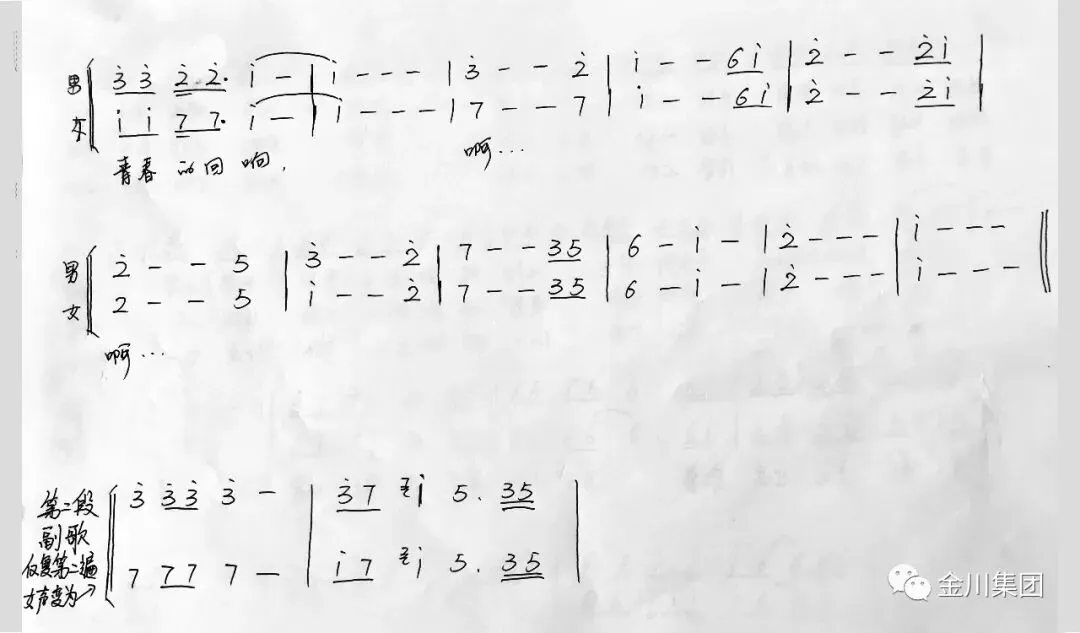 男 3̇ 3̇ 2̇ 2̇· 1̇ - | 1̇ - - - | 3̇ - - 2̇ | 1̇ - - 6 1̇ | 2̇ - - 2̇ 1̇ |
女 1̇ 1̇ 7 7· 1̇ - | 1̇ - - - | 7 - - 7 | 1̇ - - 6 1̇ | 2̇ - - 2̇ 1̇ |
青春 的回 响, 啊···
男 2̇ - - 5 | 3̇ - - 2̇ | 7 - - 3 5 | 6 - 1̇ - | 2̇ - - - | 1̇ - - - ||
女 2 - - 5 | 1̇ - - 2̇ | 7 - - 3 5 | 6 - 1̇ - | 2̇ - - - | 1̇ - - - ||
啊···
第二段 3̇ 3̇ 3̇ 3̇ - | 3̇ 7 1̇ 5. 3 5 |
副歌
反复第二遍
女声变为→ 7 7 7 7 - | 1̇ 7 1̇ 5. 3 5 |
金川集团